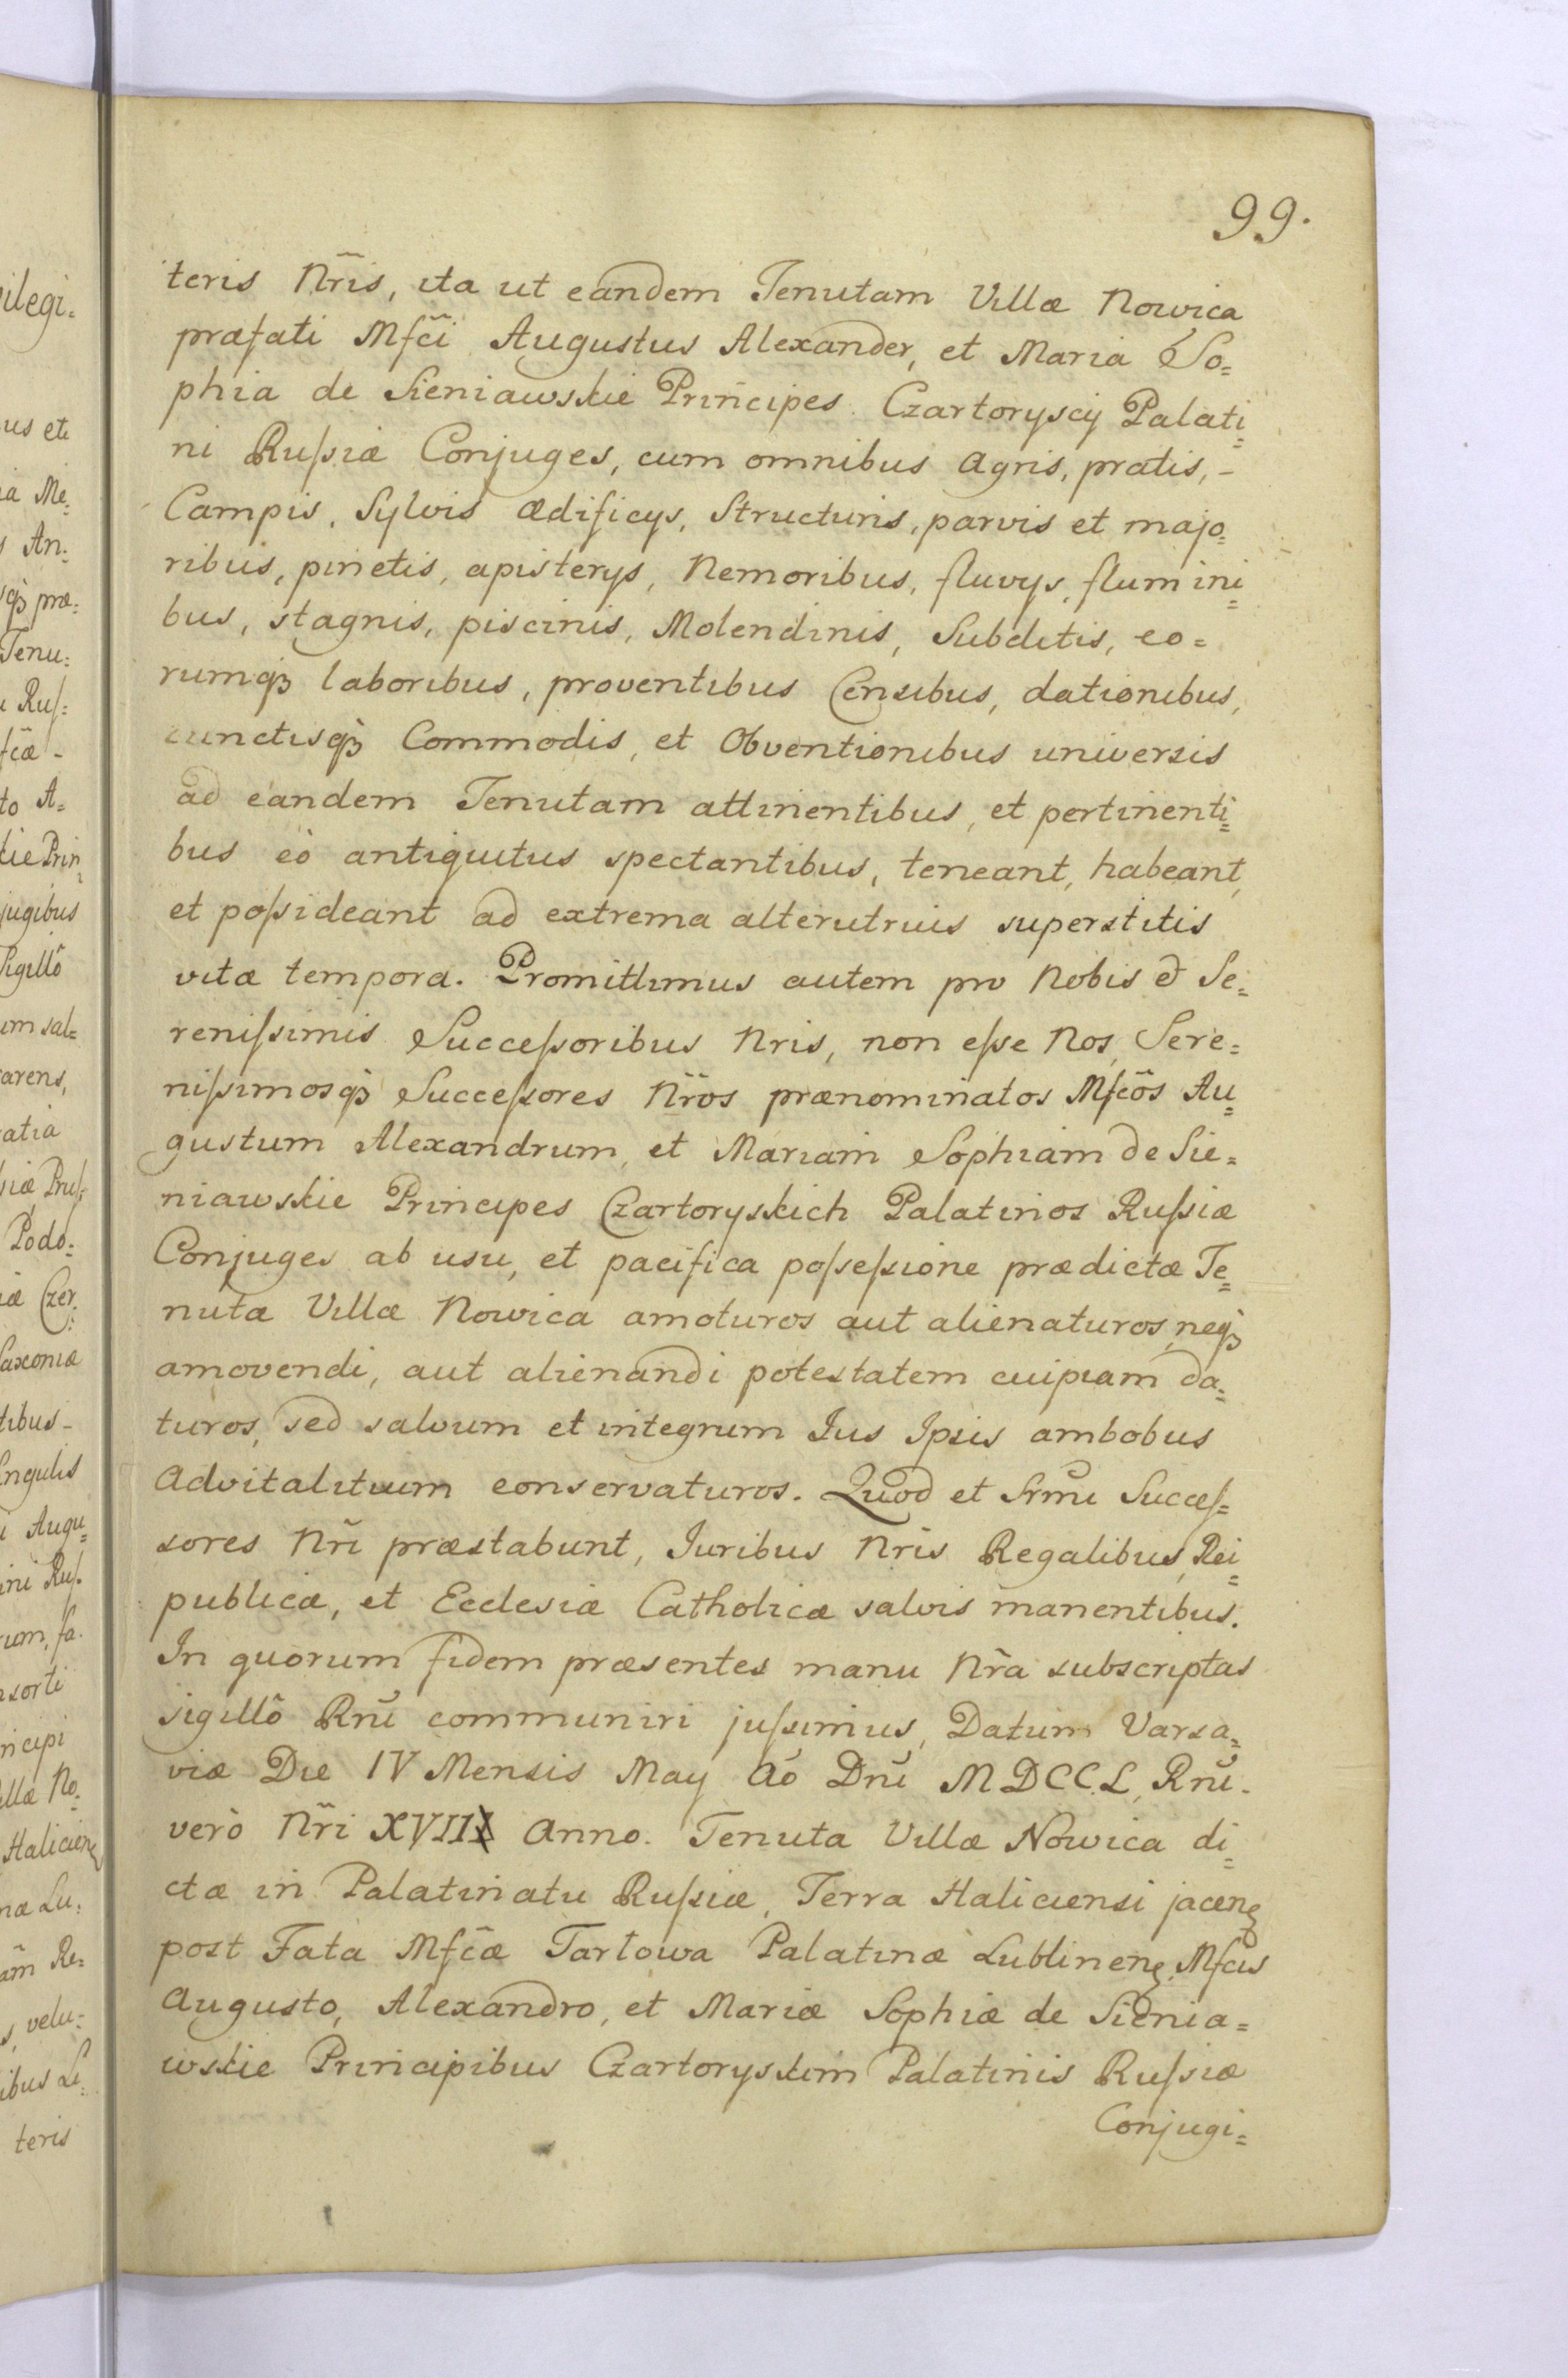 99.
teris Nr̃is, ita ut eandem Tenutam Villæ Nowica
præfati Mfc̃i Augustus Alexander, et Maria So=
phia de Sieniawskie Principes Czartoryscÿ Palati=
ni Ruſsiæ Conjuges, cum omnibus agris, pratis, -
Campis, Sylvis ædificÿs, Structuris, parvis et majo=
ribus, pinetis, apisterÿs, Nemoribus, fluvÿs, flumini=
bus, stagnis, piscinis, Molendinis, Subditis, eo=
rumqꝫ laboribus, proventibus Censibus, dationibus,
cunctisqꝫ Commodis, et Obventionibus universis
ad eandem Tenutam attinentibus, et pertinenti=
bus eò antiquitus spectantibus, teneant, habeant,
et poſsideant ad extrema alterutrius superstitis
vitæ tempora. Promittimus autem pro Nobis & Se=
reniſsimis Succeſsoribus Nris, non eſse Nos, Sere=
niſsimosqꝫ Succeſsores Nr̃os prænominatos Mfc̃os Au=
gustum Alexandrum, et Mariam Sophiam de Sie=
niawskie Principes Czartoryskich Palatinos Ruſsiæ
Conjuges ab usu, et pacifica poſseſsione prædictæ Te=
nutæ Villæ Nowica amoturos aut alienaturos, neqꝫ
amovendi, aut alienandi potestatem cuipiam da=
turos, sed salvum et integrum Jus Ipsis ambobus
Advitalitium conservaturos. Quod et Srm̃i Succeſ=
sores Nr̃i præstabunt, Juribus Nris Regalibus, Rei=
publicæ, et Ecclesiæ Catholicæ salvis manentibus.
In quorum fidem præsentes manu Nr̃a subscriptas
sigillô Rñi communiri juſsimus, Datum Varsa=
viæ Die IV Mensis Maÿ Aõ Dñi MDCC.L, Rñi -
verò Nr̃i XVII Anno. Tenuta Villæ Nowica di=
ctæ in Palatinatu Ruſsiæ, Terra Haliciensi jacenꝭ
post Fata Mfc̃æ Tarłowa Palatinæ Lublinenꝭ, Mfc̃is
Augusto, Alexandro, et Mariæ Sophiæ de Sienia=
wskie Principibus Czartoryskim Palatinis Ruſsiæ
Conjugi=